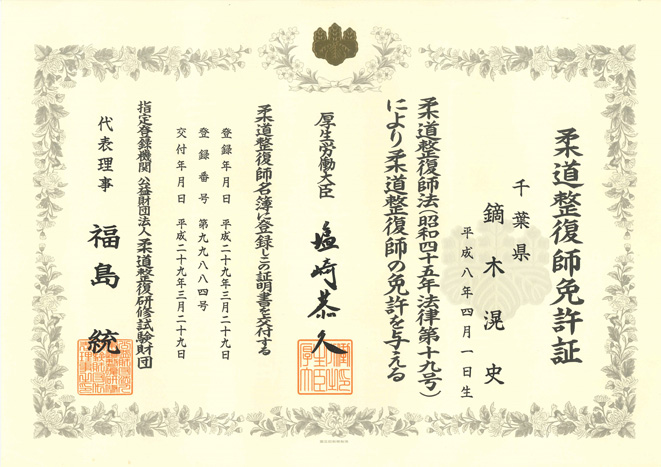 柔道整復師免許証
千葉県
鏑木滉史
平成八年四月一日生
柔道整復師法(昭和四十五年法律第十九号)
により柔道整復師の免許を与える
厚生労働大臣 塩崎恭久
柔道整復師名簿に登録しこの証明書を交付する
登録年月日 平成二十九年三月二十九日
登録番号 第九九八八四号
交付年月日 平成二十九年三月二十九日
指定登録機関 公益財団法人柔道整復研修試験財団
代表理事 福島統